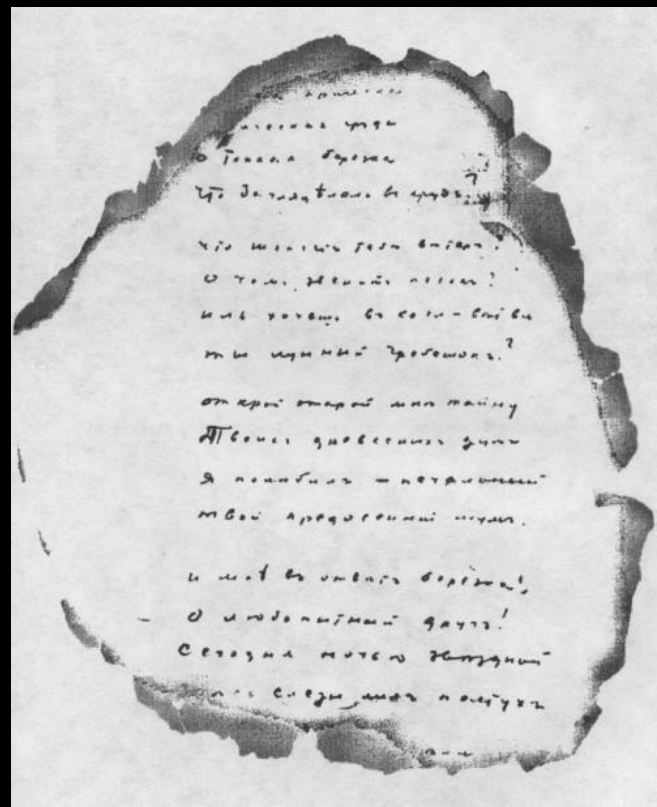 прическа
ическая грудь
О тонкая березка
Что загляделась въ прудъ?
Что шепчетъ тебѣ вѣтеръ?
О чемъ звенитъ песокъ?
иль хочешь въ косы-вѣтви
ты лунный гребешокъ?
открой открой мнѣ тайну
Твоихъ древесныхъ думъ
Я полюбилъ – печальный
твой предосенний шумъ.
и мнѣ въ отвѣтъ берёзка:
О любопытный другъ!
Сегодня ночью звѣздной
слезы лилъ пастухъ